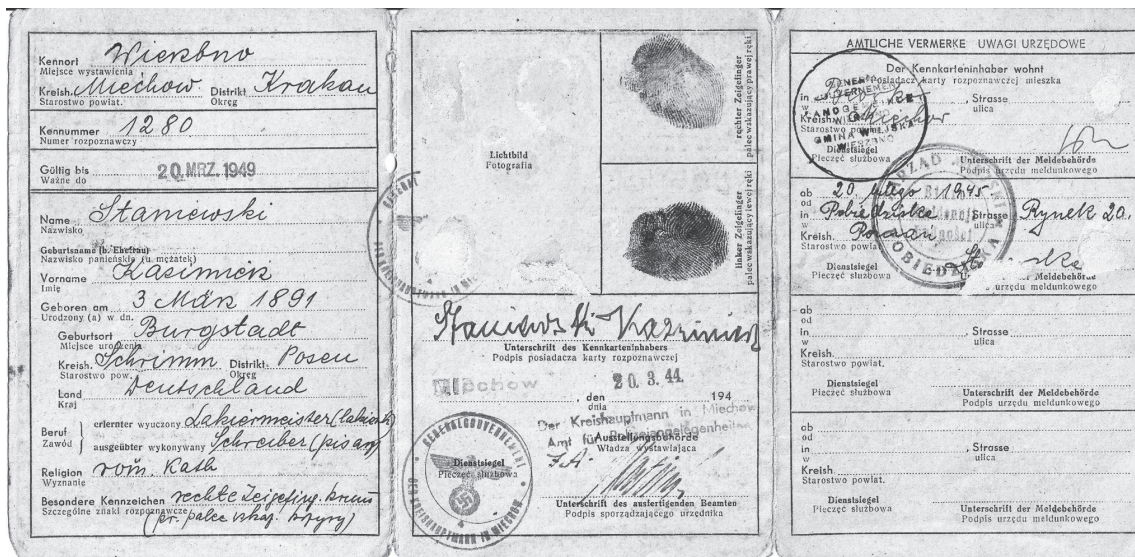 Kennort Wierzbno
Miejsce wystawienia
Kreish. Miechow. Distrikt Krakau
Starostwo powiat. Okręg
Kennummer 1280
Numer rozpoznawczy
Gültig bis 20. MRZ. 1949
Ważne do
Name Staniewski
Nazwisko
Geburtsname (b. Ehefrau)
Nazwisko panieńskie (u mężatek)
Vorname Kasimierz
Imię
Geboren am 3 März 1891
Urodzony (a) w dn.
Geburtsort Burgstadt
Miejsce urodzenia
Kreish. Schrimm Distrikt. Posen
Starostwo pow. Okręg
Land Deutschland
Kraj
Beruf erlernter wyuczony Lakiermeister (lakiernik)
Zawód ausgeübter wykonywany Schreiber (pisarz)
Religion röm. Kath
Wyznanie
Besondere Kennzeichen rechte Zeigefing. krumm
Szczególne znaki rozpoznawcze (pr. palec wskaz. krzywy)
Lichtbild
Fotografia
rechter Zeigefinger
palec wskazujący prawej ręki
linker Zeigefinger
palec wskazujący lewej ręki
Staniewski Kazimierz
Unterschrift des Kennkarteninhabers
Podpis posiadacza karty rozpoznawczej
Miechow , den 20. 3. 44. 194
dnia
Der Kreishauptmann in Miechow
Amt für Polizeiangelegenheiten
Ausstellungsbehörde
Władza wystawiająca
Dienstsiegel
Pieczęć służbowa
GENERALGOUVERNEMENT
DER KREISHAUPTMANN IN MIECHOW
Unterschrift des ausfertigenden Beamten
Podpis sporządzającego urzędnika
AMTLICHE VERMERKE UWAGI URZĘDOWE
Der Kennkarteninhaber wohnt
Posiadacz karty rozpoznawczej mieszka
in , Strasse
w ulica
Kreish. Miechow
Starostwo powiat.
LANDGEMEINDE
GMINA WIEJSKA
WIERZBNO
Dienstsiegel Unterschrift der Meldebehörde
Pieczęć służbowa Podpis urzędu meldunkowego
ab 20. lutego 1945.
od
in Pobiedziska , Strasse Rynek 20.
w ulica
Kreish. Poznań
Starostwo powiat.
Dienstsiegel der Meldebehörde
Pieczęć służbowa urzędu meldunkowego
ab
od
in , Strasse
w ulica
Kreish.
Starostwo powiat.
Dienstsiegel Unterschrift der Meldebehörde
Pieczęć służbowa Podpis urzędu meldunkowego
ab
od
in , Strasse
w ulica
Kreish.
Starostwo powiat.
Dienstsiegel Unterschrift der Meldebehörde
Pieczęć służbowa Podpis urzędu meldunkowego